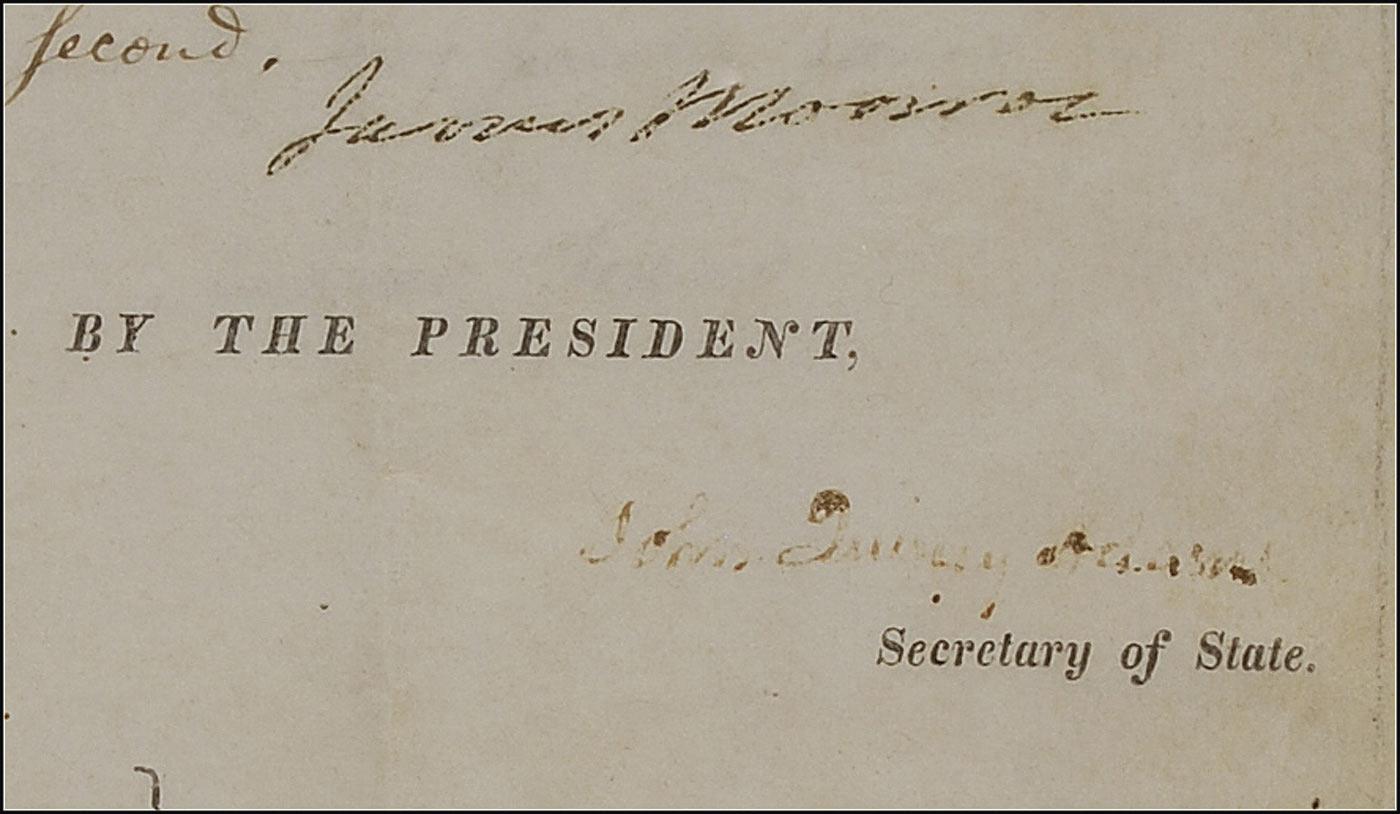 second.
James Monroe
BY THE PRESIDENT,
John Quincy Adams
Secretary of State.
}